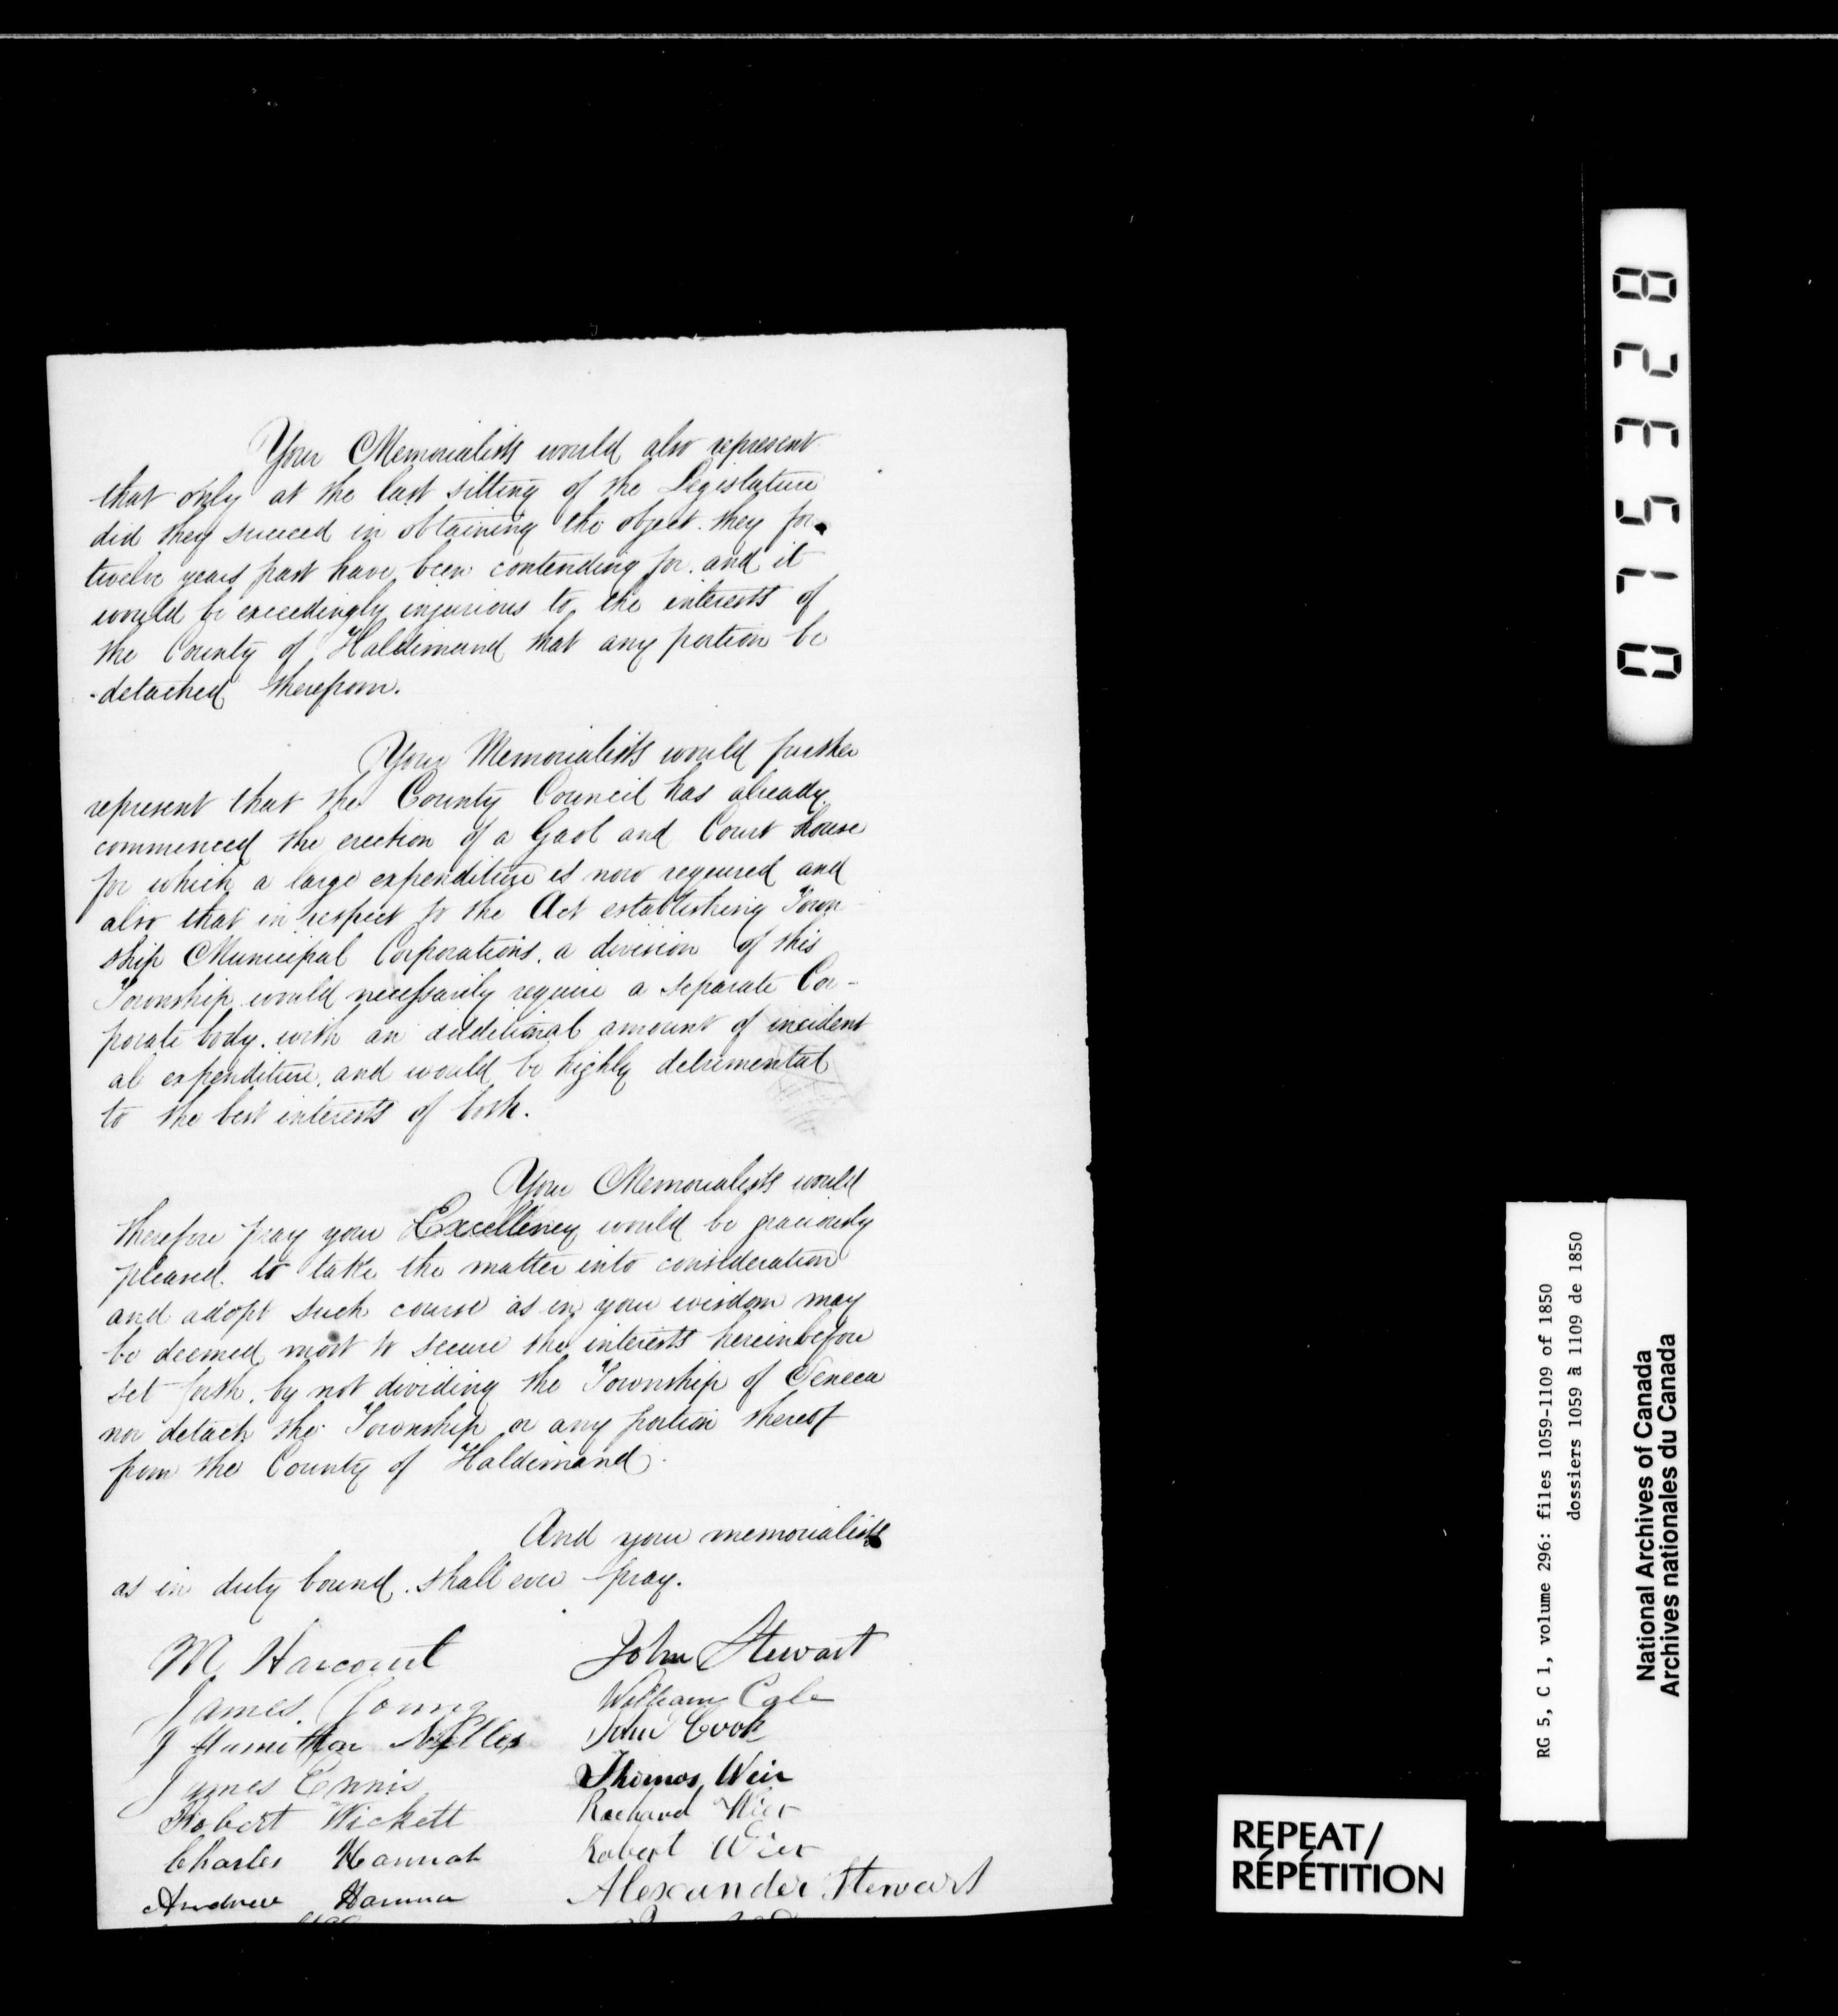 Your Memorialists would also represent
that only at the last sitting of the Legislature
did they succeed in obtaining the object they for
twelve years past have been contending for. and it
would be exceedingly injurious to the interests of
the County of Haldimand that any portion be
detached therefrom.
Your Memorialists would further
represent that the County Council has already
commenced the erection of a Gaol and Court house
for which a large expenditure is now required and
also that in respect to the Act establishing Town-
ship Municipal Corporations, a division of this
Township would necessarily require a separate Cor-
porate body, with an additional amount of incident
al expenditure, and would be highly detrimental
to the best interests of both.
Your Memorialists would
therefore pray your Excellency would be graciously
pleased to take the matter into consideration
and adopt such course as in your wisdom may
be deemed most to secure the interests hereinbefore
set forth, by not dividing the Township of Seneca
nor detach the Township or any portion thereof
from the County of Haldimand.
And your memorialists
as in duty bound, shall ever pray.
M Harcourt John Stewart
James Young William Cole
J Hamilton Nelles John Cook
James Ennis Thomas Weir
Robert Wickett Richard Wier
Charles Hannah Robert Wier
Andrew Hanna Alexander Stewart
075328
RG 5, C 1, volume 296: files 1059-1109 of 1850
dossiers 1059 à 1109 de 1850
National Archives of Canada
Archives nationales du Canada
REPEAT/
RÉPÉTITION